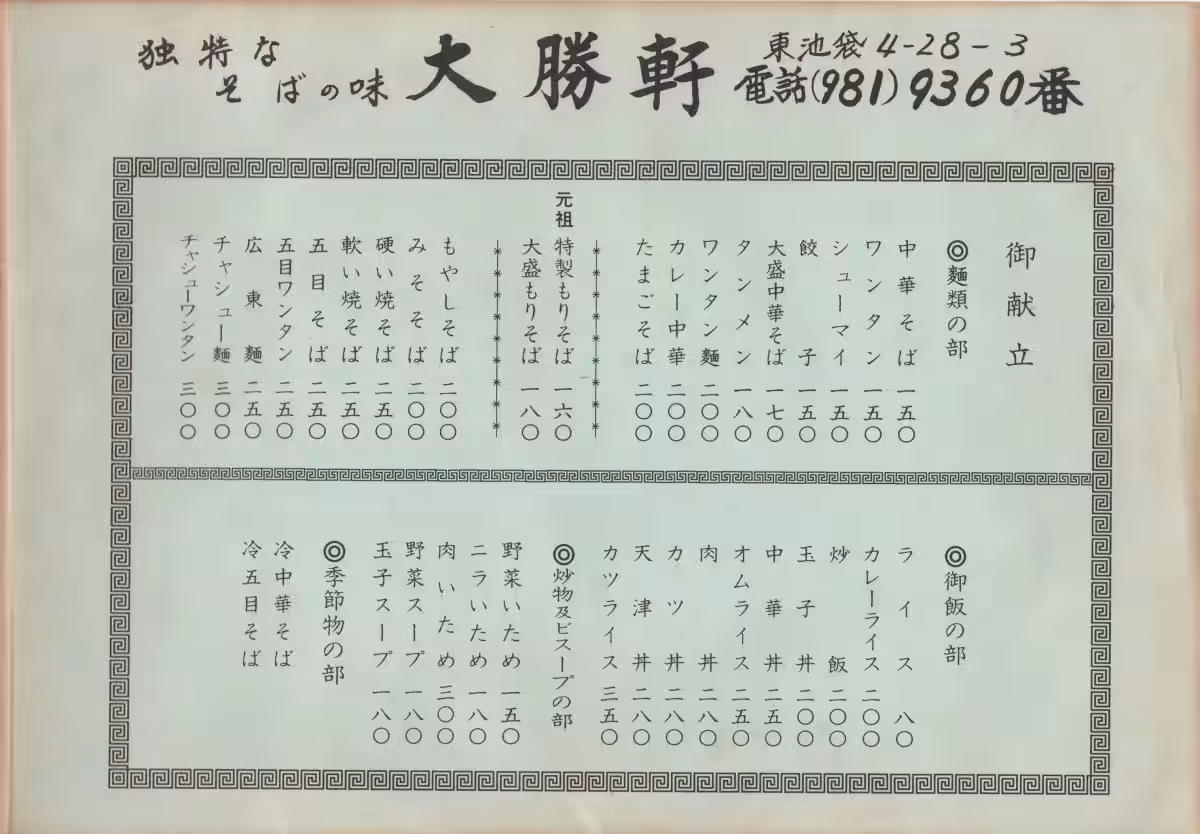 独特な
そばの味
大勝軒
東池袋4-28-3
電話(981)9360番
御献立
◎麵類の部
中華そば 一五〇
ワンタン 一五〇
シューマイ 一五〇
餃子 一五〇
大盛中華そば 一七〇
タンメン 一八〇
ワンタン麵 二〇〇
カレー中華 二〇〇
たまごそば 二〇〇
元祖 特製もりそば 一六〇
大盛もりそば 一八〇
もやしそば 二〇〇
みそそば 二〇〇
硬い焼そば 二五〇
軟い焼そば 二五〇
五目そば 二五〇
五目ワンタン 二五〇
広東麵 二五〇
チャシュー麵 三〇〇
チャシューワンタン 三〇〇
◎御飯の部
ライス 八〇
カレーライス 二〇〇
炒飯 二〇〇
玉子丼 二〇〇
中華丼 二五〇
オムライス 二五〇
肉丼 二八〇
カツ丼 二八〇
天津丼 二八〇
カツライス 三五〇
◎炒物及ビスープの部
野菜いため 一五〇
ニラいため 一八〇
肉いため 三〇〇
野菜スープ 一八〇
玉子スープ 一八〇
◎季節物の部
冷中華そば
冷五目そば